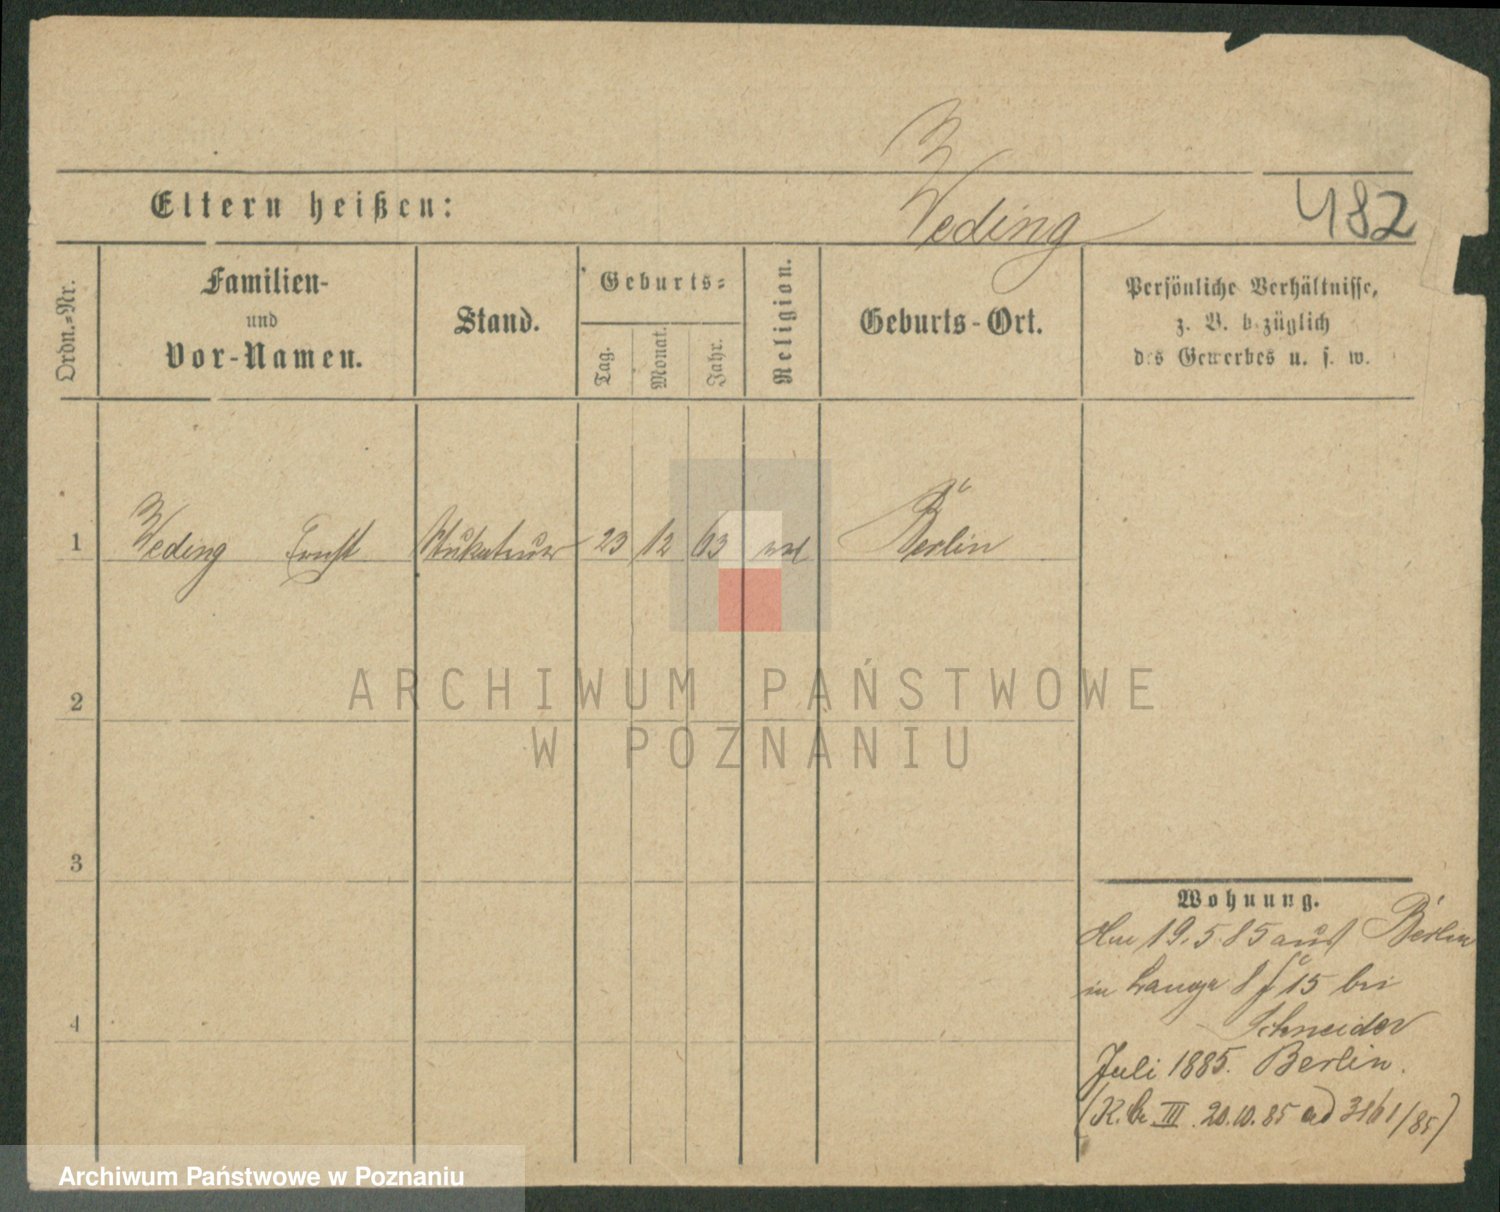 Eltern heißen:
Weding
482
Ordn.-Nr.
Familien-
und
Vor-Namen.
Stand.
Geburts-
Tag.
Monat.
Jahr.
Religion.
Geburts-Ort.
Persönliche Verhältnisse,
z. B. bezüglich
des Gewerbes u. s. w.
1 Weding Ernst Stukateur 23 12 63 Berlin
ARCHIWUM PAŃSTWOWE
W POZNANIU
2
3
4
Wohnung.
19.5.85 aus Berlin
in Lange 15 bei
Schneider
Juli 1885. Berlin.
III. 20.10.85 ad 3161/85)
Archiwum Państwowe w Poznaniu